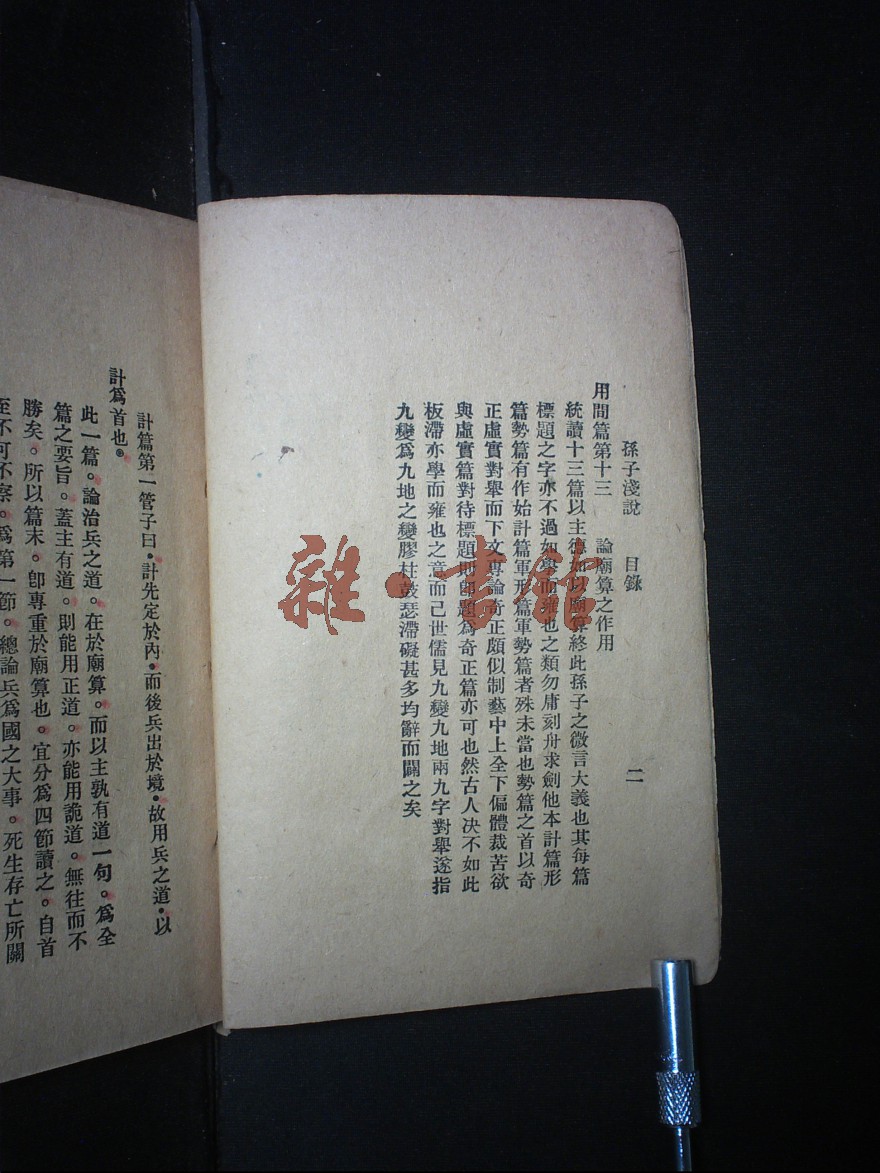 孫子淺說　目錄　二
用間篇第十三　論廟算之作用
統讀十三篇以主德始以廟算終此孫子之微言大義也其每篇
標題之字亦不過如學而雍也之類勿庸刻舟求劍他本計篇形
篇勢篇有作始計篇軍形篇軍勢篇者殊未當也勢篇之首以奇
正虛實對舉而下文專論奇正頗似制藝中上全下偏體裁苦欲
與虛實篇對待標題則卽題為奇正篇亦可也然古人決不如此
板滯亦學而雍也之意而已世儒見九變九地兩九字對舉遂指
九變爲九地之變膠柱鼓瑟滯礙甚多均辭而闢之矣
計篇第一管子曰．計先定於內．而後兵出於境．故用兵之道．以
計爲首也。
此一篇。論治兵之道。在於廟算。而以主孰有道一句。爲全
篇之要旨。蓋主有道。則能用正道。亦能用詭道。無往而不
勝矣。所以篇末。卽專重於廟算也。宜分爲四節讀之。自首
至不可不察。爲第一節。總論兵爲國之大事。死生存亡所關
雜·書館